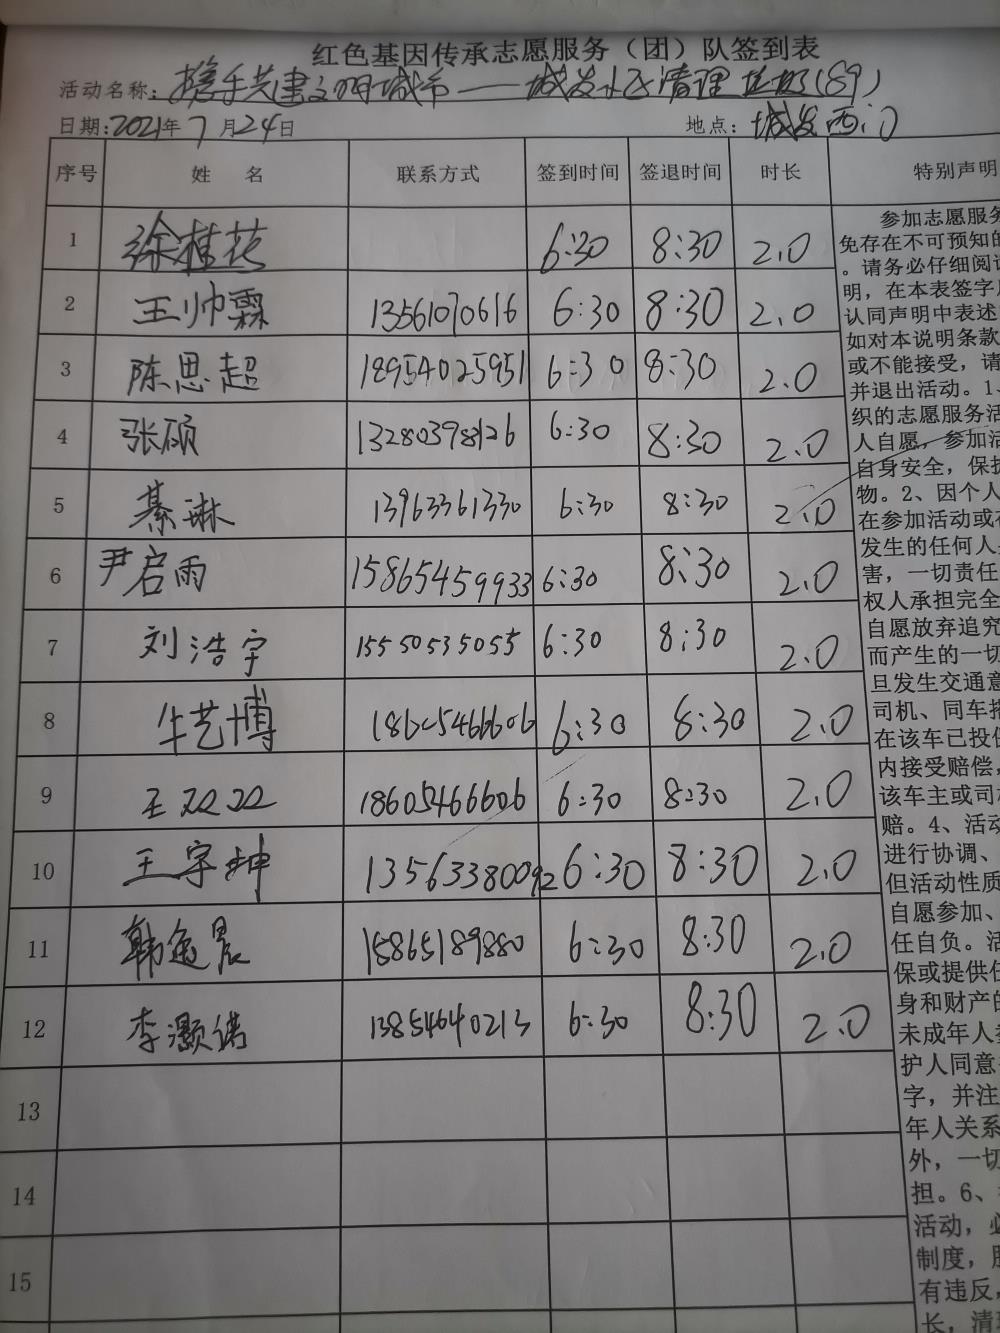 红色基因传承志愿服务（团）队签到表
活动名称：携手共建文明城市——城发小区清理垃圾(89)
日期：2021年7月24日 地点：城发西门
序号 姓 名 联系方式 签到时间 签退时间 时长 特别声明
1 徐桂花 6:30 8:30 2.0
2 王帅霖 13561070616 6:30 8:30 2.0
3 陈思超 18954025951 6:30 8:30 2.0
4 张硕 13280398126 6:30 8:30 2.0
5 綦琳 13963361330 6:30 8:30 2.0
6 尹启雨 15865459933 6:30 8:30 2.0
7 刘浩宇 15550535055 6:30 8:30 2.0
8 牛艺博 18605466606 6:30 8:30 2.0
9 王双双 18605466606 6:30 8:30 2.0
10 王宇坤 13563380092 6:30 8:30 2.0
11 韩逸晨 15865189880 6:30 8:30 2.0
12 李灏 13854640213 6:30 8:30 2.0
13
14
15
参加志愿服务
免存在不可预知的
。请务必仔细阅读
明，在本表签字
认同声明中表述
如对本说明条款
或不能接受，请
并退出活动。1、
织的志愿服务活
人自愿，参加活
自身安全，保护
物。2、因个人
在参加活动或在
发生的任何人
害，一切责任
权人承担完全
自愿放弃追究
而产生的一切
旦发生交通意
司机、同车搭
在该车已投保
内接受赔偿，
该车主或司机
赔。4、活动
进行协调、
但活动性质
自愿参加、
任自负。活
保或提供任
身和财产的
未成年人参
护人同意
字，并注
年人关系
外，一切
担。6、
活动，必
制度，服
有违反，
长，清